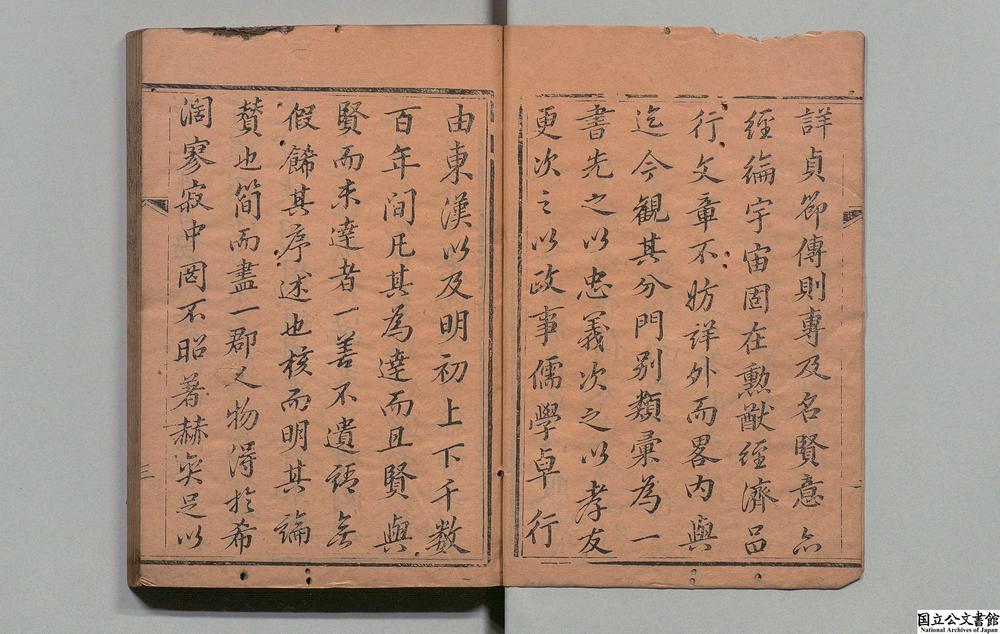 詳貞節傳則專及名賢意亦
經綸宇宙固在勲猷經濟品
行文章不妨詳外而畧内與
迄今觀其分門别類彙為一
書先之以忠義次之以孝友
更次之以政事儒學卓行
由東漢以及明初上下千数
百年間凡其為達而且賢與
賢而未達者一善不遺語無
假餙其序述也核而明其論
賛也簡而盡一郡之人物得於希
濶寥寂中罔不昭著赫奕足以
三
国立公文書館
National Archives of Japan